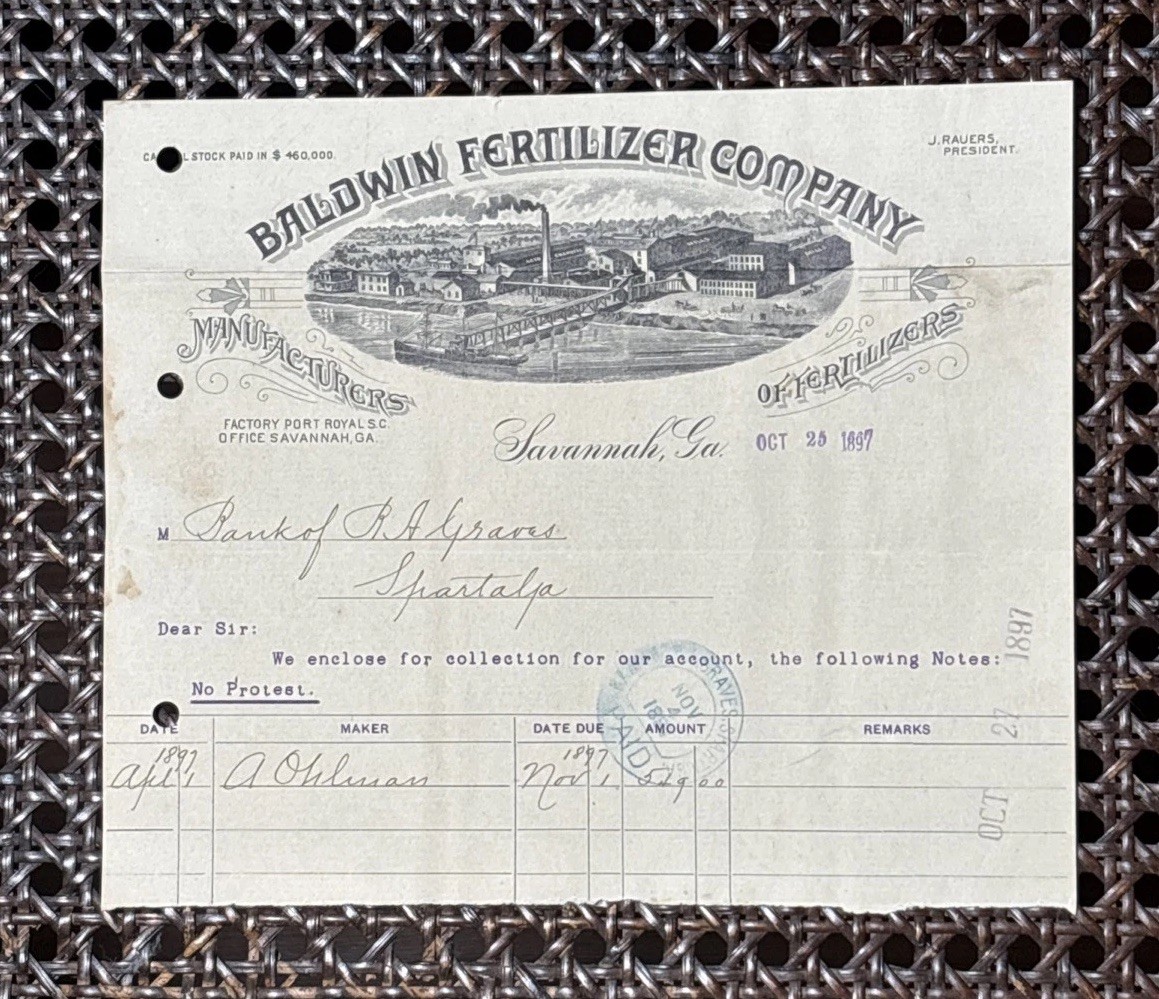 CA L STOCK PAID IN $ 460,000.
J. RAUERS,
PRESIDENT.
BALDWIN FERTILIZER COMPANY
MANUFACTURERS
OF FERTILIZERS
FACTORY PORT ROYAL S.C.
OFFICE SAVANNAH, GA.
Savannah, Ga. OCT 25 1897
M Bank of R A Graves
Sparta Ga
Dear Sir:
We enclose for collection for our account, the following Notes:
No Protest.
OCT 27 1897
GRAVES, SPART
NOV
PAID
DATE MAKER DATE DUE AMOUNT REMARKS
1897 1897
Apl 1 A Ohlman Nov 1 00